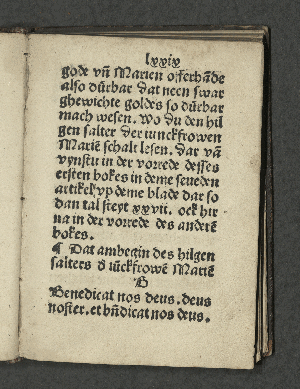 lxxix
gode vn̄ Marien offerhāde
also dürbar dat neen swar
ghewichte goldes so dürbar
mach wesen. Wo du den hil
gen salter der iunckfrowen
Mariē schalt lesen. dar vā
vynstu in der vorrede desses
ersten bokes in deme seueden
artikel vp deme blade dar so
dan tal steyt xxvii. ock hir
na in der vorrede des anderē
bokes.
¶ Dat ambegin des hilgen
salters d̕ iūckfrowē Mariē
B
Benedicat nos deus. deus
noster. et bn̄dicat nos deus.